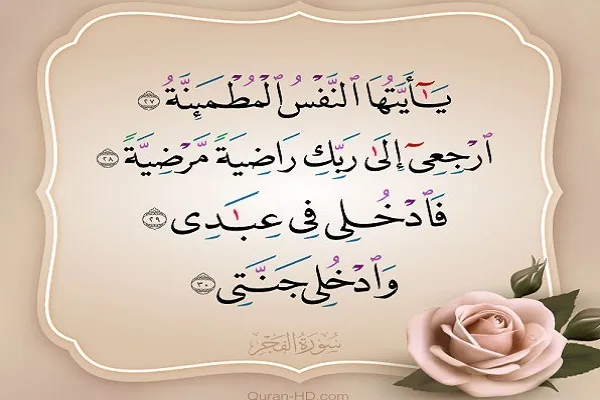 يَـٰٓأَيَّتُهَا ٱلنَّفْسُ ٱلْمُطْمَئِنَّةُ ٢٧
ٱرْجِعِىٓ إِلَىٰ رَبِّكِ رَاضِيَةً مَّرْضِيَّةً ٢٨
فَٱدْخُلِى فِى عِبَـٰدِى ٢٩
وَٱدْخُلِى جَنَّتِى ٣٠
سُورَةُ الفَجْرِ
Quran-HD.com